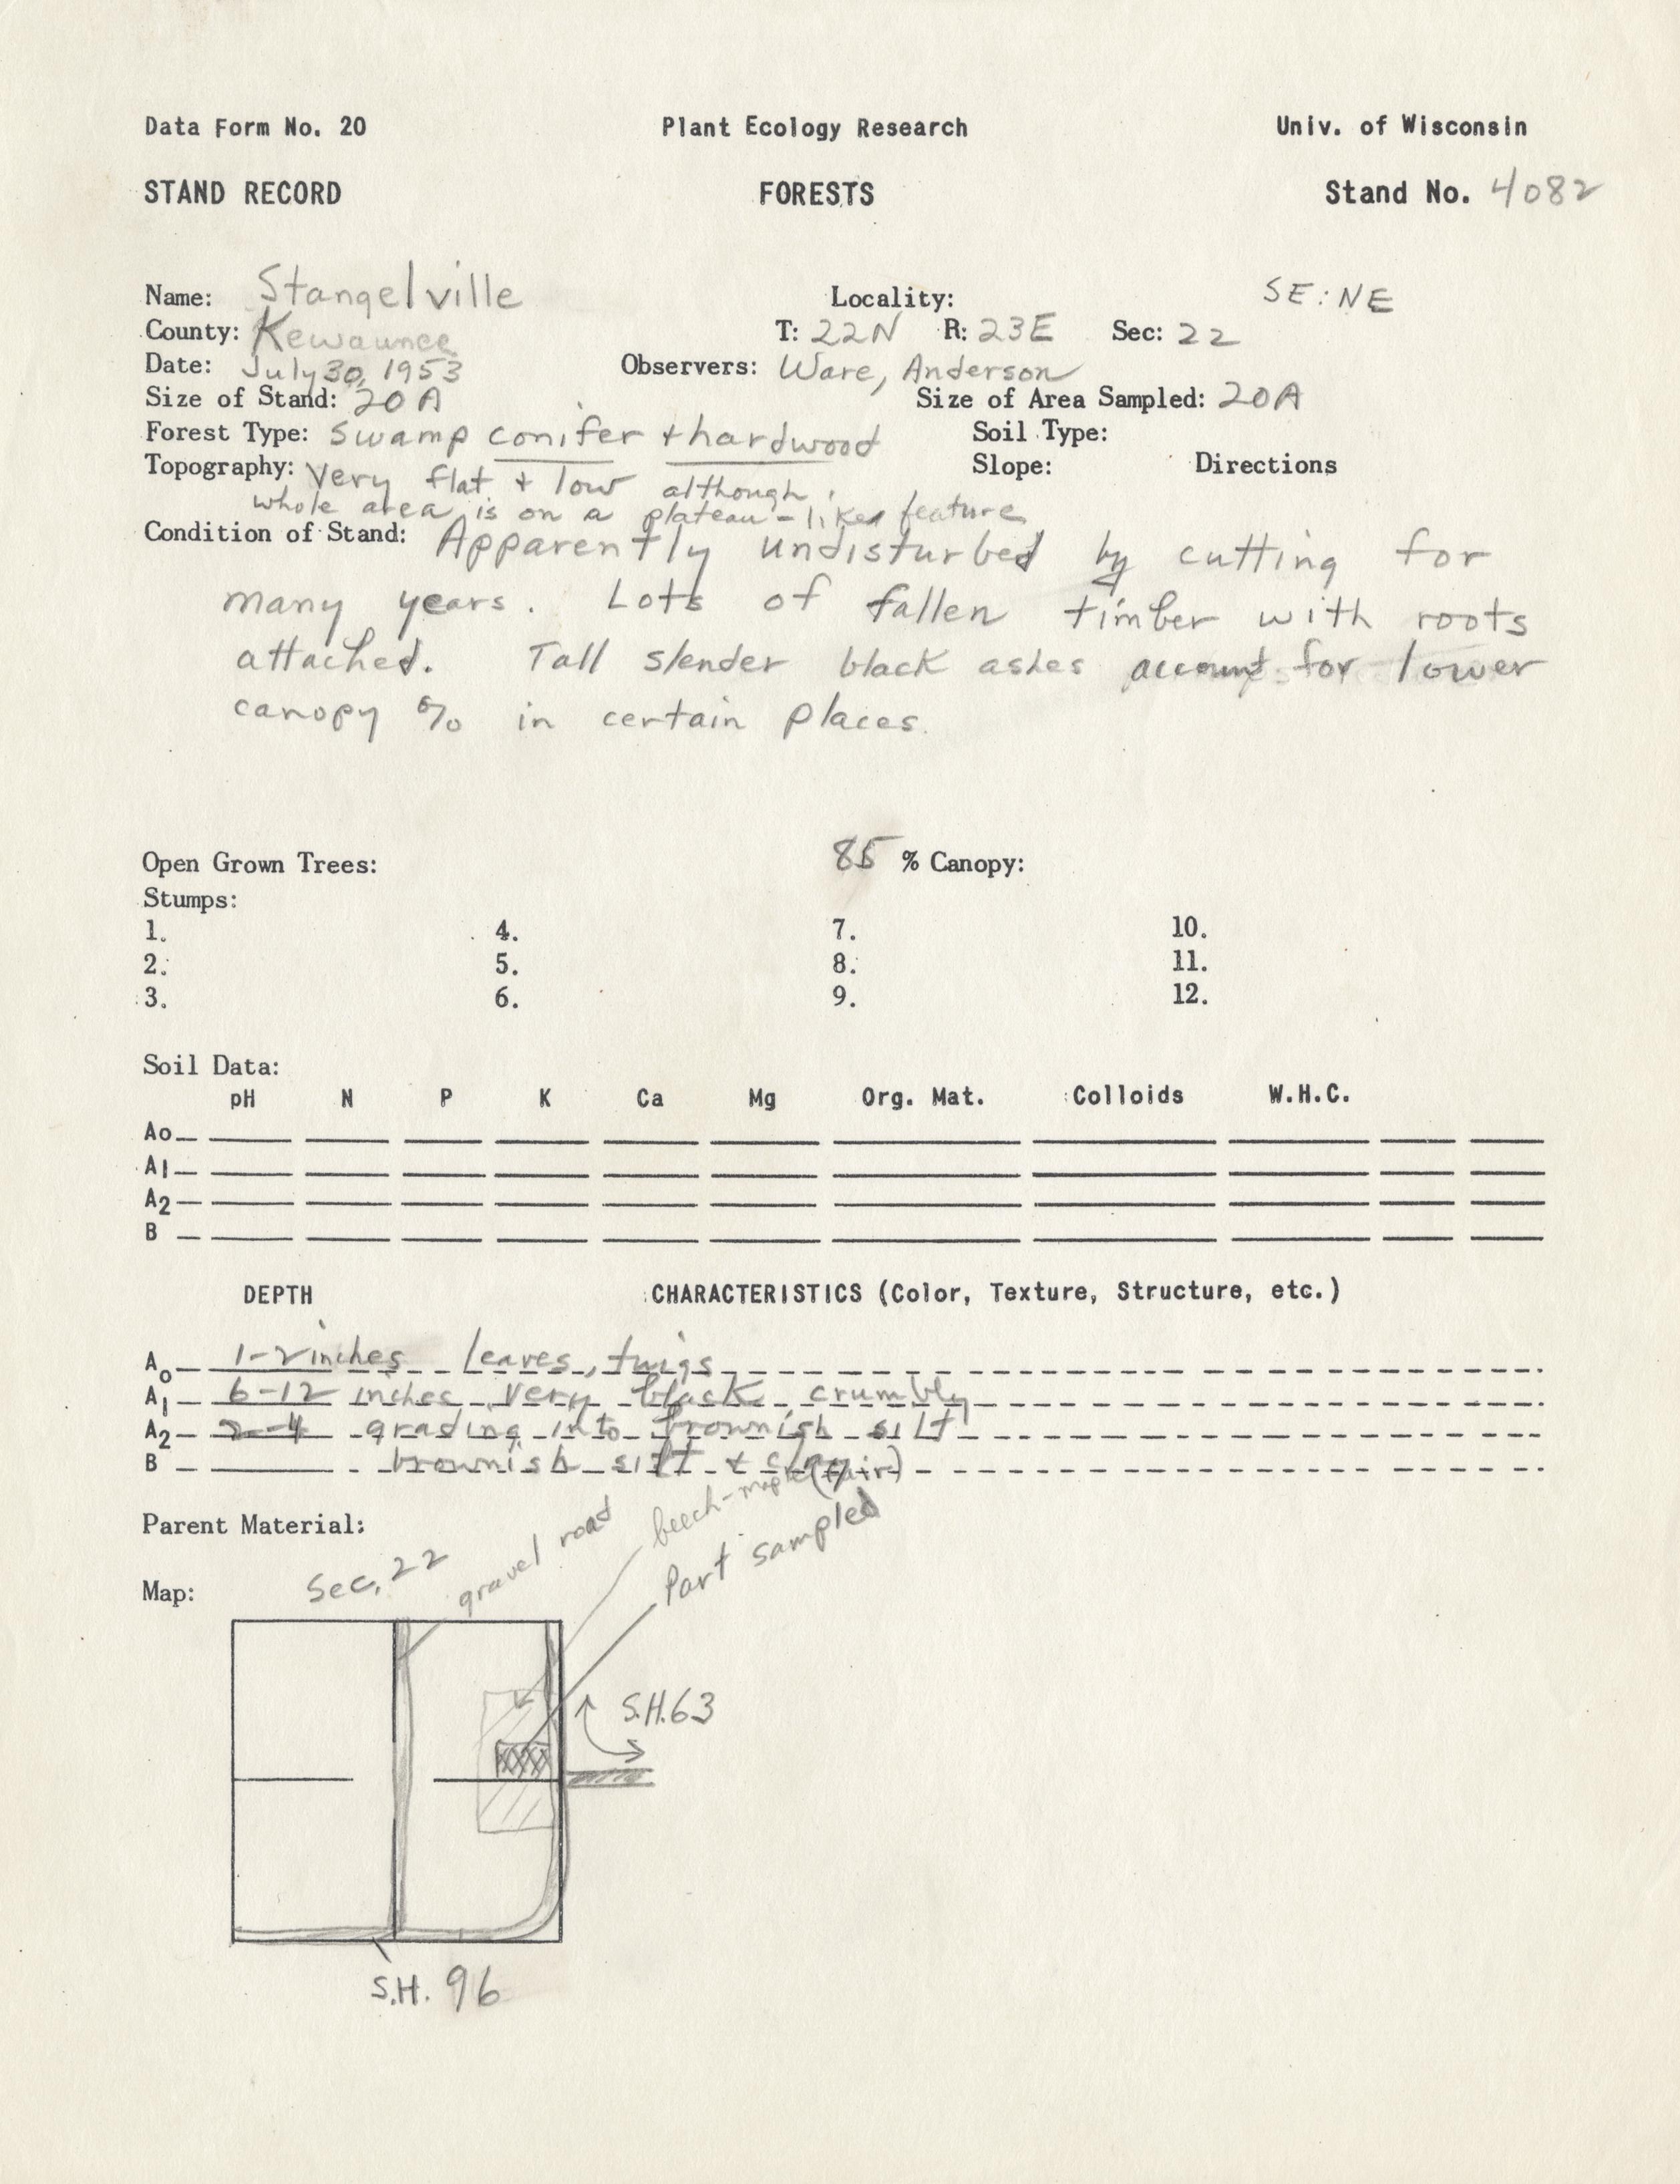 Data Form No. 20 Plant Ecology Research Univ. of Wisconsin
STAND RECORD FORESTS Stand No. 4082
Name: Stangelville Locality: SE:NE
County: Kewaunee T: 22N R: 23E Sec: 22
Date: July 30, 1953 Observers: Ware, Anderson
Size of Stand: 20 A Size of Area Sampled: 20A
Forest Type: Swamp conifer + hardwood Soil Type:
Topography: Very flat + low although Slope: Directions
whole area is on a plateau-like feature
Condition of Stand: Apparently undisturbed by cutting for
many years. Lots of fallen timber with roots
attached. Tall slender black ashes account for lower
canopy % in certain places.
Open Grown Trees: 85 % Canopy:
Stumps:
1. 4. 7. 10.
2. 5. 8. 11.
3. 6. 9. 12.
Soil Data:
pH N P K Ca Mg Org. Mat. Colloids W.H.C.
Ao
A1
A2
B
DEPTH CHARACTERISTICS (Color, Texture, Structure, etc.)
Ao 1-2 inches leaves, twigs
A1 6-12 inches very black crumbly
A2 2-4 grading into brownish silt
B brownish silt + clay
Parent Material:
beech-maple (fair)
Map: Sec. 22 gravel road Part sampled
S.H.63
S.H. 96